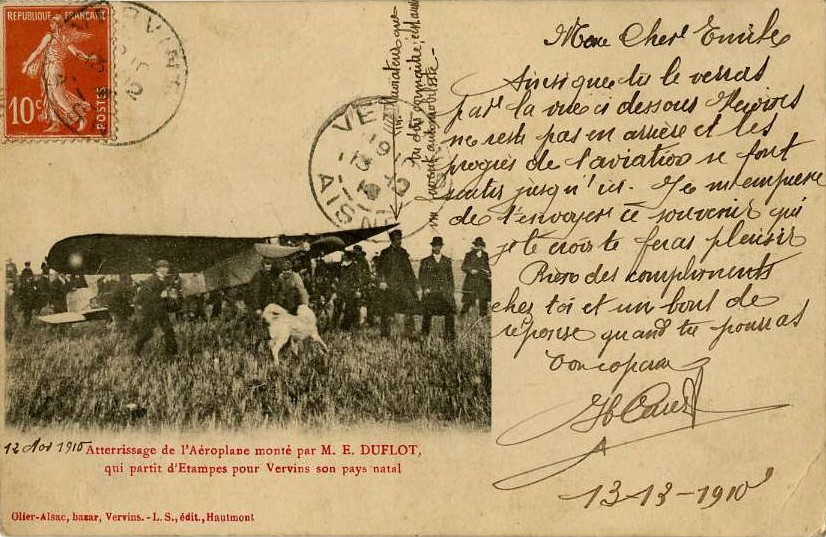 REPUBLIQUE FRANÇAISE
10c
VERVINS
AISNE
Mon Cher Emile
Ainsi que tu le verras
par la vue ci dessous Vervins
ne reste pas en arrière et les
progrès de l'aviation se font
sentir jusqu'ici. Je m'empresse
de t'envoyer ce souvenir qui
je le crois te feras plaisir
Bien des compliments
chez toi et un bout de
réponse quand tu pourras
Ton copain
12 Aot 1910 Atterrissage de l'Aéroplane monté par M. E. DUFLOT,
qui partit d'Etampes pour Vervins son pays natal
13-13-1910
Olier-Alsac, bazar, Vervins.-L. S., édit., Hautmont